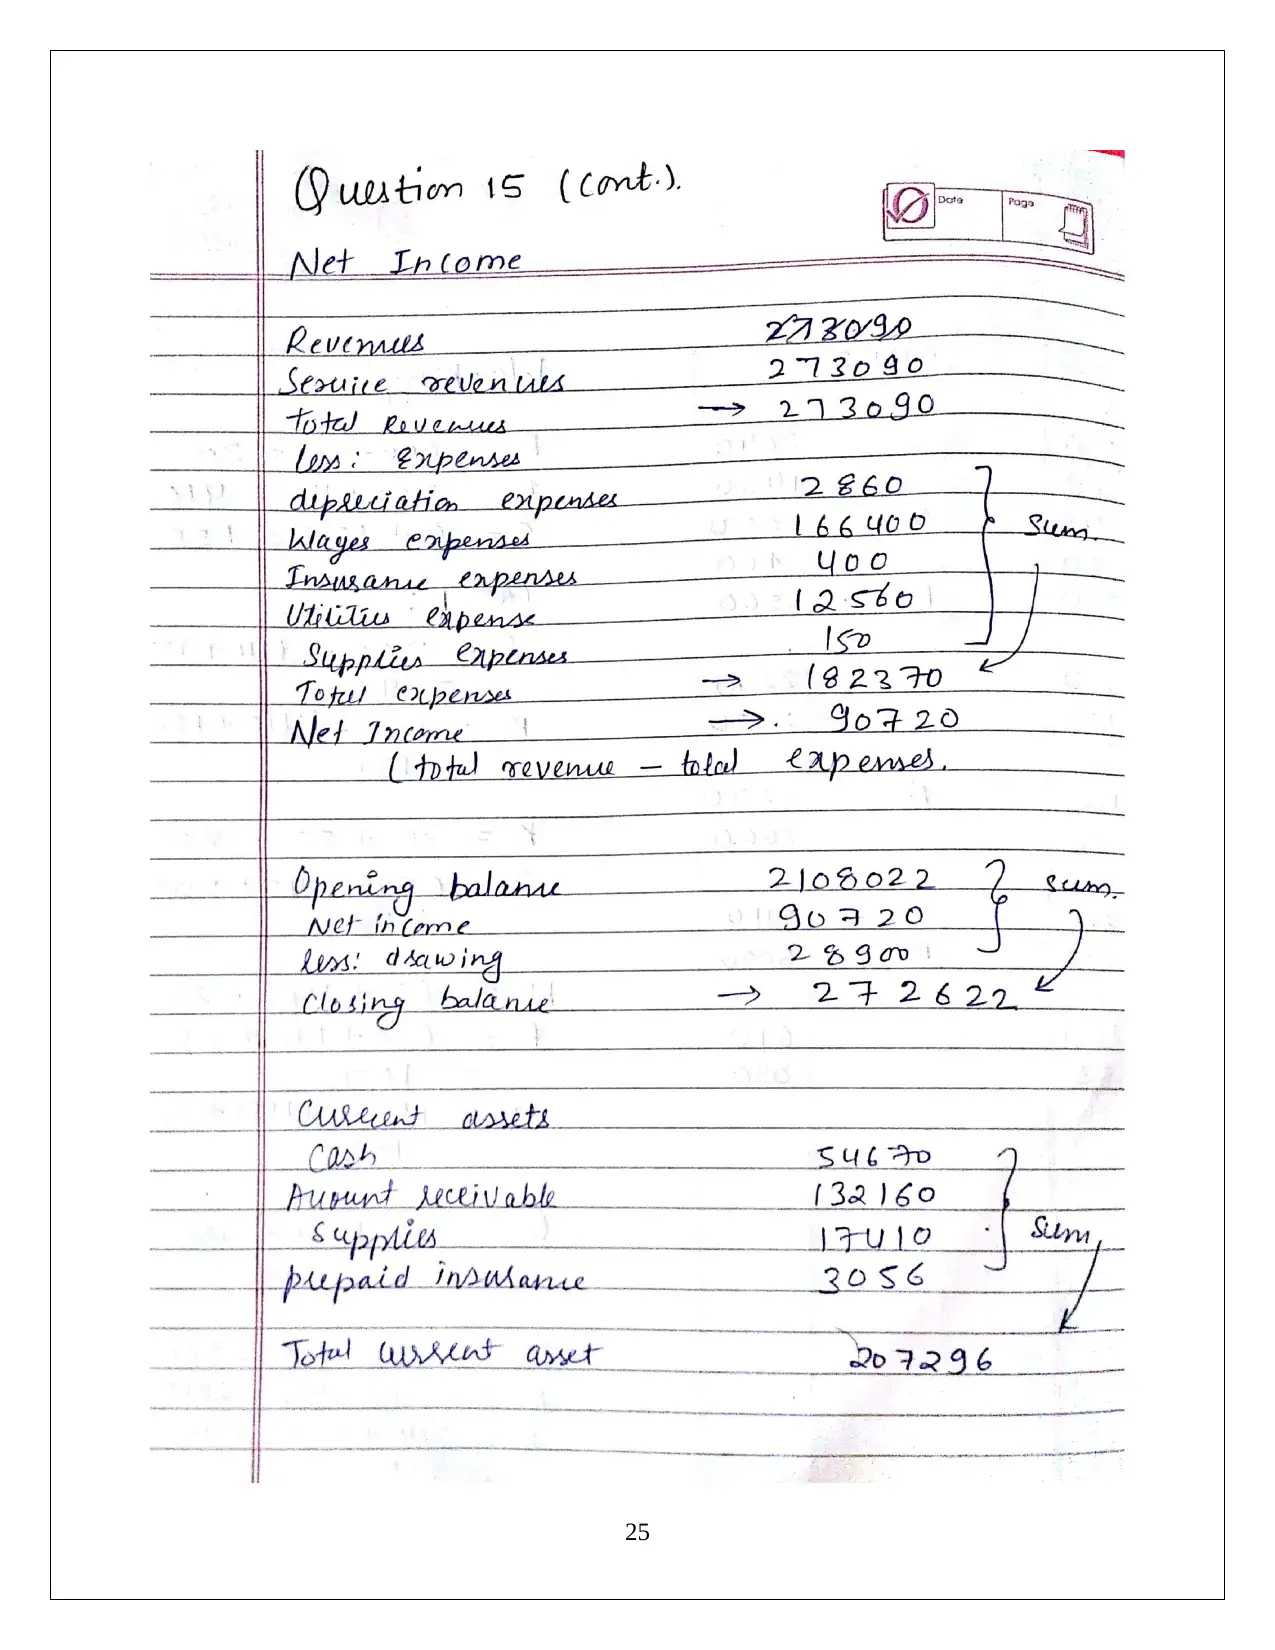 Question 15 (Cont.).
Date Page
Net Income
Revenues 273090
Service revenues 273090
total Revenues → 273090
less: Expenses
depreciation expenses 2860
Wages expenses 166400 Sum.
Insurance expenses 400
Utilities expense 12560
Supplies expenses 150
Total expenses → 182370
Net Income →. 90720
(total revenue - total expenses.
Opening balance 2108022 sum.
Net income 90720
less: drawing 28900
Closing balance → 272622
Current assets
Cash 54670
Account receivable 132160
Supplies 17410 Sum
prepaid insurance 3056
Total current asset 207296
25